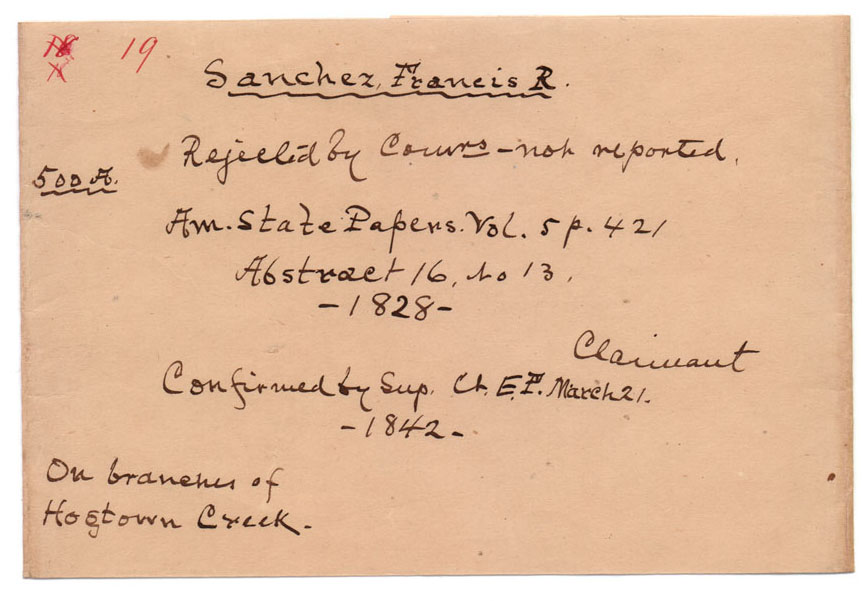 18 19
Sanchez, Francis R.
Rejected by Comrs - not reported.
500 A.
Am. State Papers. Vol. 5 p. 421
Abstract 16, No 13.
-1828-
Claimant
Confirmed by Sup. Ct. E.F. March 21.
-1842-
On branches of
Hogtown Creek.